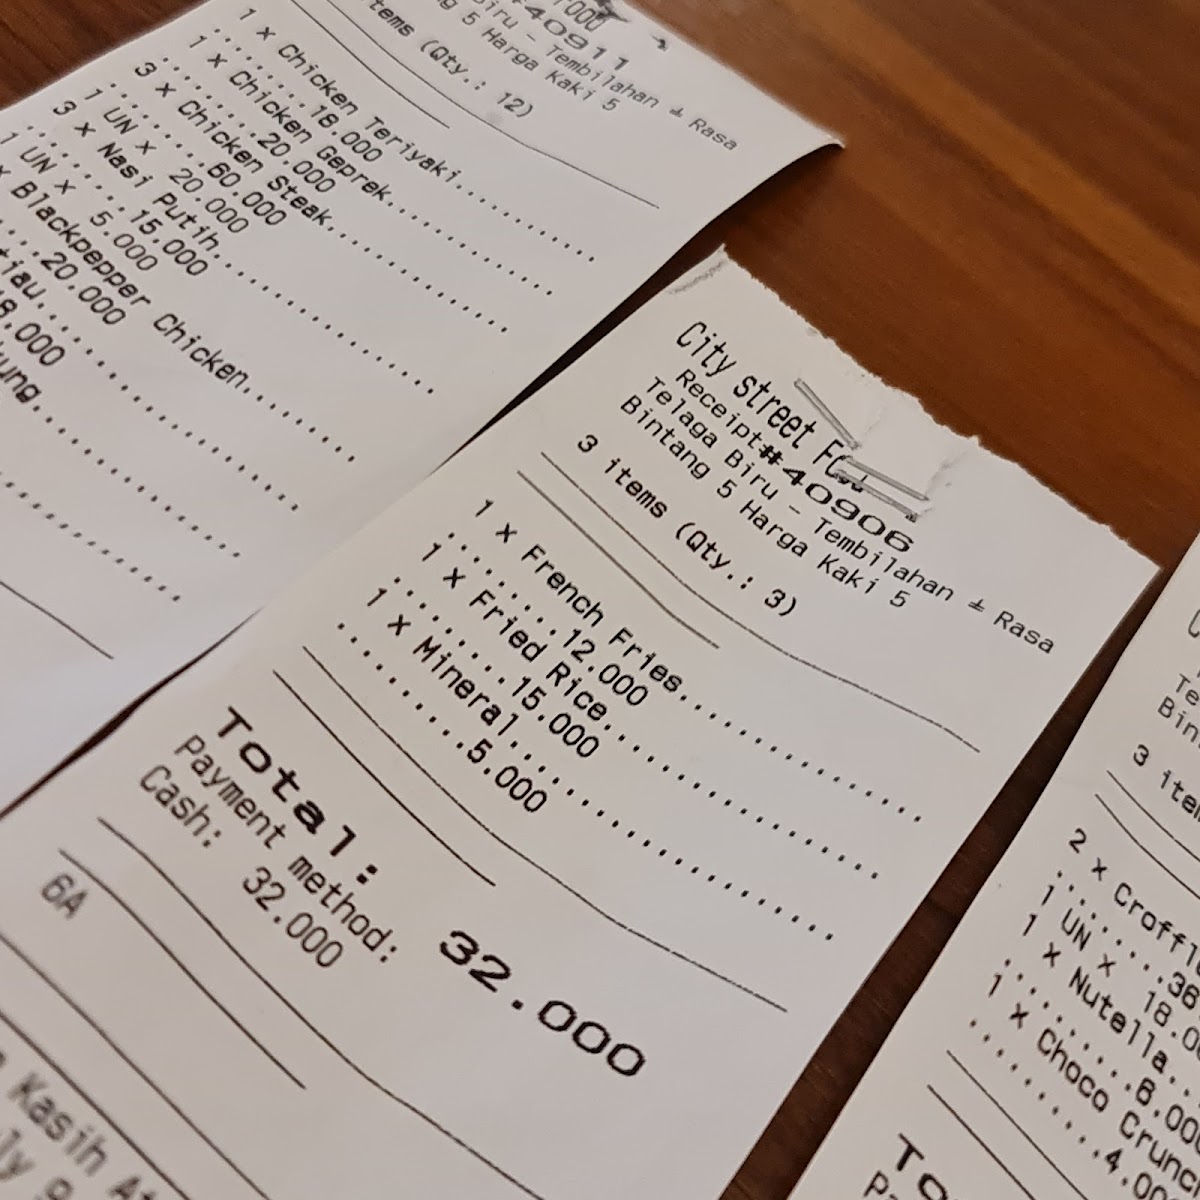 #40911
Biru - Tembilahan ± Rasa
5 Harga Kaki 5
items (Qty.: 12)
1 x Chicken Teriyaki..........
........18.000
1 x Chicken Geprek..........
........20.000
3 x Chicken Steak..........
........60.000
1 UN x 20.000
3 x Nasi Putih..........
........15.000
1 UN x 5.000
x Blackpepper Chicken..........
....20.000
City street
Receipt#40906
Telaga Biru - Tembilahan ± Rasa
Bintang 5 Harga Kaki 5
3 items (Qty.: 3)
1 x French Fries..........
........12.000
1 x Fried Rice..........
........15.000
1 x Mineral..........
........5.000
Total: 32.000
Payment method:
Cash: 32.000
6A
Kasih
3
2 x
1 UN x
1 x Nutella..
1 x Choco